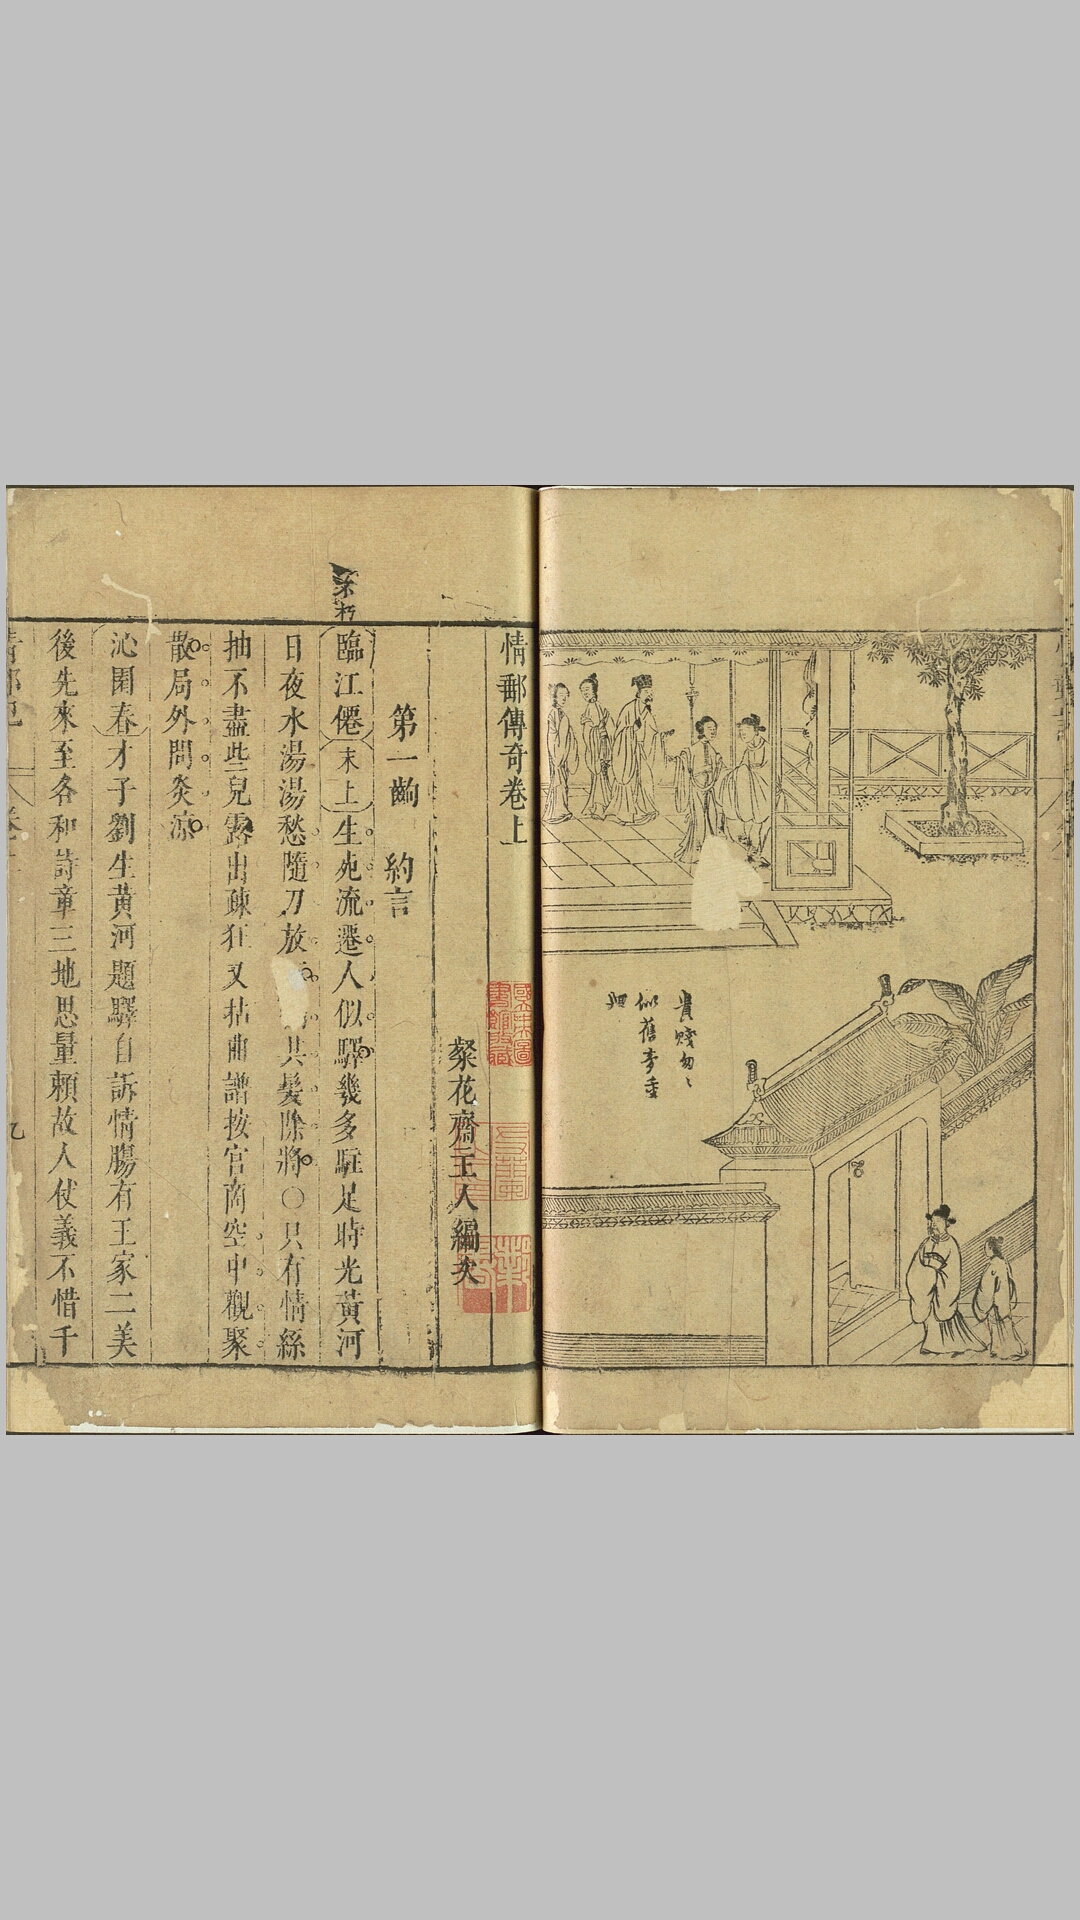 貴賤匆匆
似舊夢重
迴
情郵傳奇卷上
粲花齋主人編次
第一齣 約言
臨江僊 末上 生死流遷人似驛幾多駐足時光黃河
日夜水湯湯愁隨刀放 共髮除將〇只有情絲
抽不盡些兒露出疎狂又拈曲譜按宮商空中觀聚
散局外問炎凉
沁園春才子劉生黃河題驛自訴情腸有王家二美
後先來至各和詩章三地思量賴故人仗義不惜千